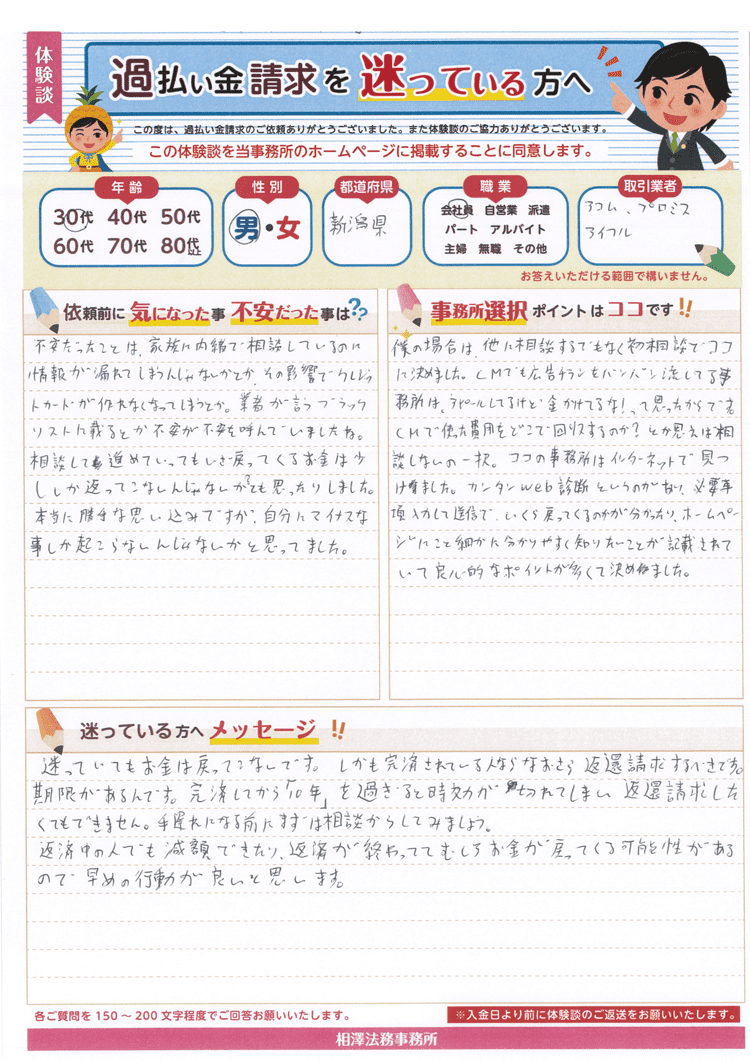 体験談
過払い金請求を迷っている方へ
この度は、過払い金請求のご依頼ありがとうございました。また体験談のご協力ありがとうございます。
この体験談を当事務所のホームページに掲載することに同意します。
年齢
30代 40代 50代
60代 70代 80代以上
性別
男・女
都道府県
新潟県
職業
会社員 自営業 派遣
パート アルバイト
主婦 無職 その他
取引業者
アコム、プロミス
アイフル
お答えいただける範囲で構いません。
依頼前に気になった事 不安だった事は??
不安だったことは、家族に内緒で相談しているのに
情報が漏れてしまうんじゃないかとか、その影響でクレジッ
トカードが作れなくなってしまうとか。業者が言うブラック
リストに載るとか不安が不安を呼んでいましたね。
相談して進めていってもいざ戻ってくるお金は少
ししか返ってこないんじゃないか?とも思ったりしました。
本当に勝手な思い込みですが、自分にマイナスな
事しか起こらないんじゃないかと思ってました。
事務所選択ポイントはココです!!
僕の場合は、他に相談するでもなく初相談でココ
に決めました。CMでも広告チラシもバンバン流してる事
務所は、アピールしてるけど金かけてるな!って思ったからです。
CMで使った費用をどこで回収するのか?とか思えば相
談しないの一択。ココの事務所はインターネットで見つ
けました。カンタンweb診断というのがあり、必要事
項入力して送信で、いくら戻ってくるのかが分かったり、ホームペー
ジにこと細かに分かりやすく知りたいことが記載されて
いて良心的なポイントが多くて決めました。
迷っている方へメッセージ!!
迷っていてもお金は戻ってこないです。しかも完済されている人ならなおさら返還請求するべきです。
期限があるんです。完済してから「10年」を過ぎると時効が切れてしまい返還請求した
くてもできません。手遅れになる前にまずは相談からしてみましょう。
返済中の人でも減額できたり、返済が終わっててむしろお金が戻ってくる可能性がある
ので早めの行動が良いと思います。
各ご質問を150～200文字程度でご回答お願いいたします。
※入金日より前に体験談のご返送をお願いいたします。
相澤法務事務所